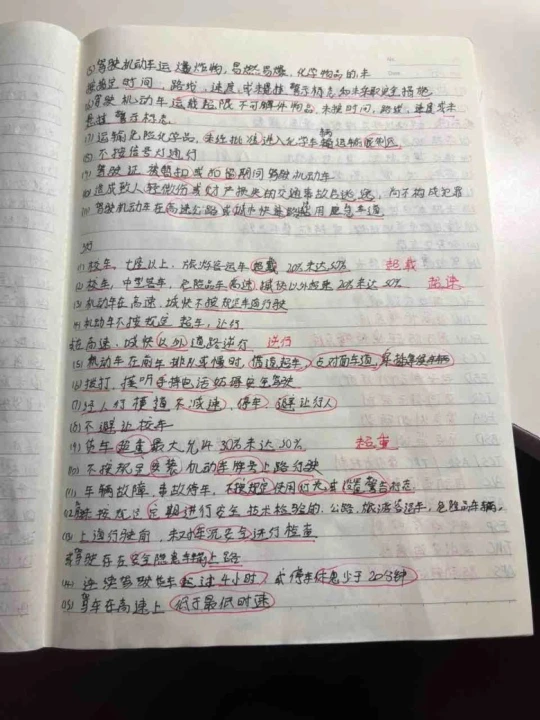 (5)驾驶机动车运爆炸物,易燃易爆,化学物品的,未
按指定时间,路线,速度,或未悬挂警示标志和未采取安全措施
(6)驾驶机动车运载超限不可解体物品,未按时间,路线,速度或未
悬挂警示标志
(7)运输危险化学品,未经批准进入化学车辆运输限制区
(8)不按信号灯通行
(9)驾驶证被暂扣或扣留期间驾驶机动车
(10)造成致人轻微伤或财产损失的交通事故后逃逸,尚不构成犯罪
(11)驾驶机动车在高速公路或城市快速路占用应急车道
3分
(1)校车,七座以上,旅游客运车超载20%未达50% 超载
(2)校车,中型客车,危险品车高速,城快以外超速20%未达50% 超速
(3)机动车在高速、城快不按规定车道行驶
(4)机动车不按规定超车,让行
或在高速、城快以外道路逆行 逆行
(5)机动车在前车排队或慢时,借道超车,占对面车道,穿插等候车辆
(6)拨打、接听手持电话妨碍安全驾驶
(7)行人行横道不减速、停车、避让行人
(8)不避让校车
(9)货车超重最大允许30%未达50% 超重
(10)不按规定安装机动车牌号上路行驶
(11)车辆故障,事故停车,不按规定使用灯光或设置警告标志
(12)未按规定定期进行安全技术检验的,公路,旅游客运车,危险品车辆。
(13)上道行驶前,未对车况安全进行检查
或驾驶存在安全隐患车辆上路
(14)连续驾驶货车超过4小时,或停车休息少于20分钟
(15)驾车在高速上低于最低时速